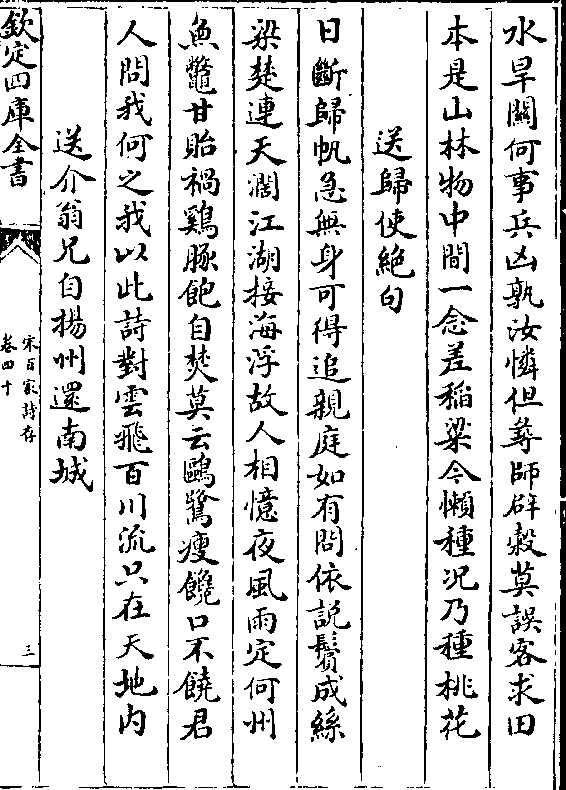 水旱關何事兵凶孰汝憐但尋師辟榖莫誤客求田
本是山林物中間一念差稻粱今懶種况乃種桃花
送歸使絶句
日斷歸帆急無身可得追親庭如有問依説鬢成絲
梁楚連天濶江湖接海浮故人相憶夜風雨定何州
魚鼈甘貽禍鷄豚飽自焚莫云鷗鷺瘦饞口不饒君
人問我何之我以此詩對雲飛百川流只在天地内
送介翁兄自楊州還南城
欽定四庫全書
宋百家詩存
卷四十
三